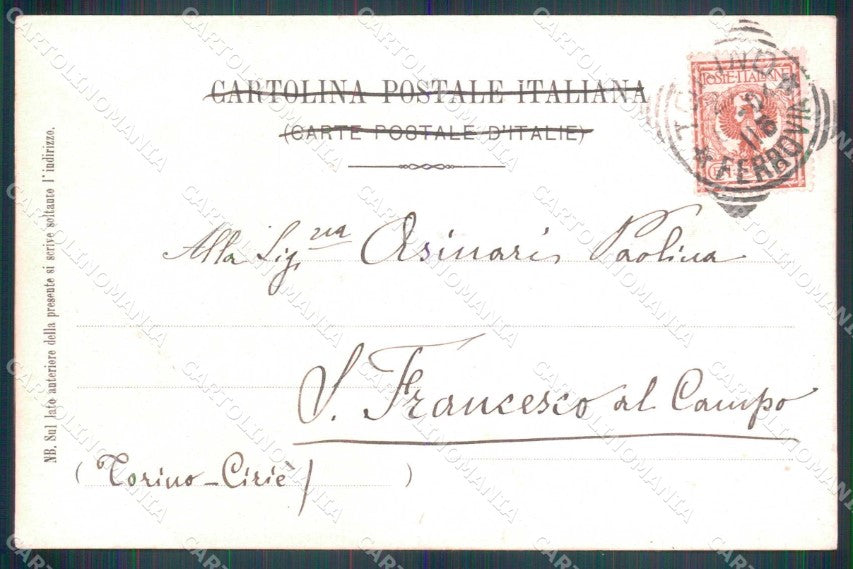 CARTOLINA POSTALE ITALIANA
(CARTE POSTALE D'ITALIE)
POSTE ITALIANE
TORINO
FERROVIA
Alla Sig.na Asinari Paolina
S. Francesco al Campo
(Torino - Ciriè)
NB. Sul lato anteriore della presente si scrive soltanto l'indirizzo.
CARTOLINOMANIA